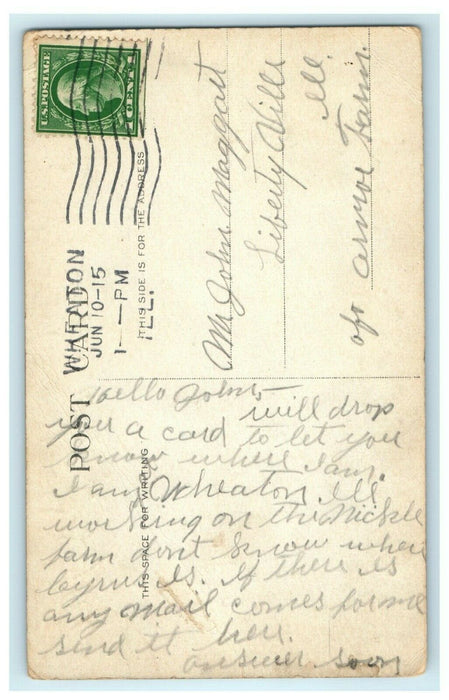 U.S. POSTAGE
1 CENT 1
WHEATON
JUN 10-15
1-PM
ILL.
POST CARD
THIS SIDE IS FOR THE ADDRESS
THIS SPACE FOR WRITING
Mr John Maggart
Liberty Ville
Ill.
o/o Armor Farm.
Hello John,—
will drop
you a card to let you
know where I am.
I am Wheaton Ill
working on the Nickle
farm dont know where
Cyrus Is. if there is
any mail comes for me
send it here.
answer soon